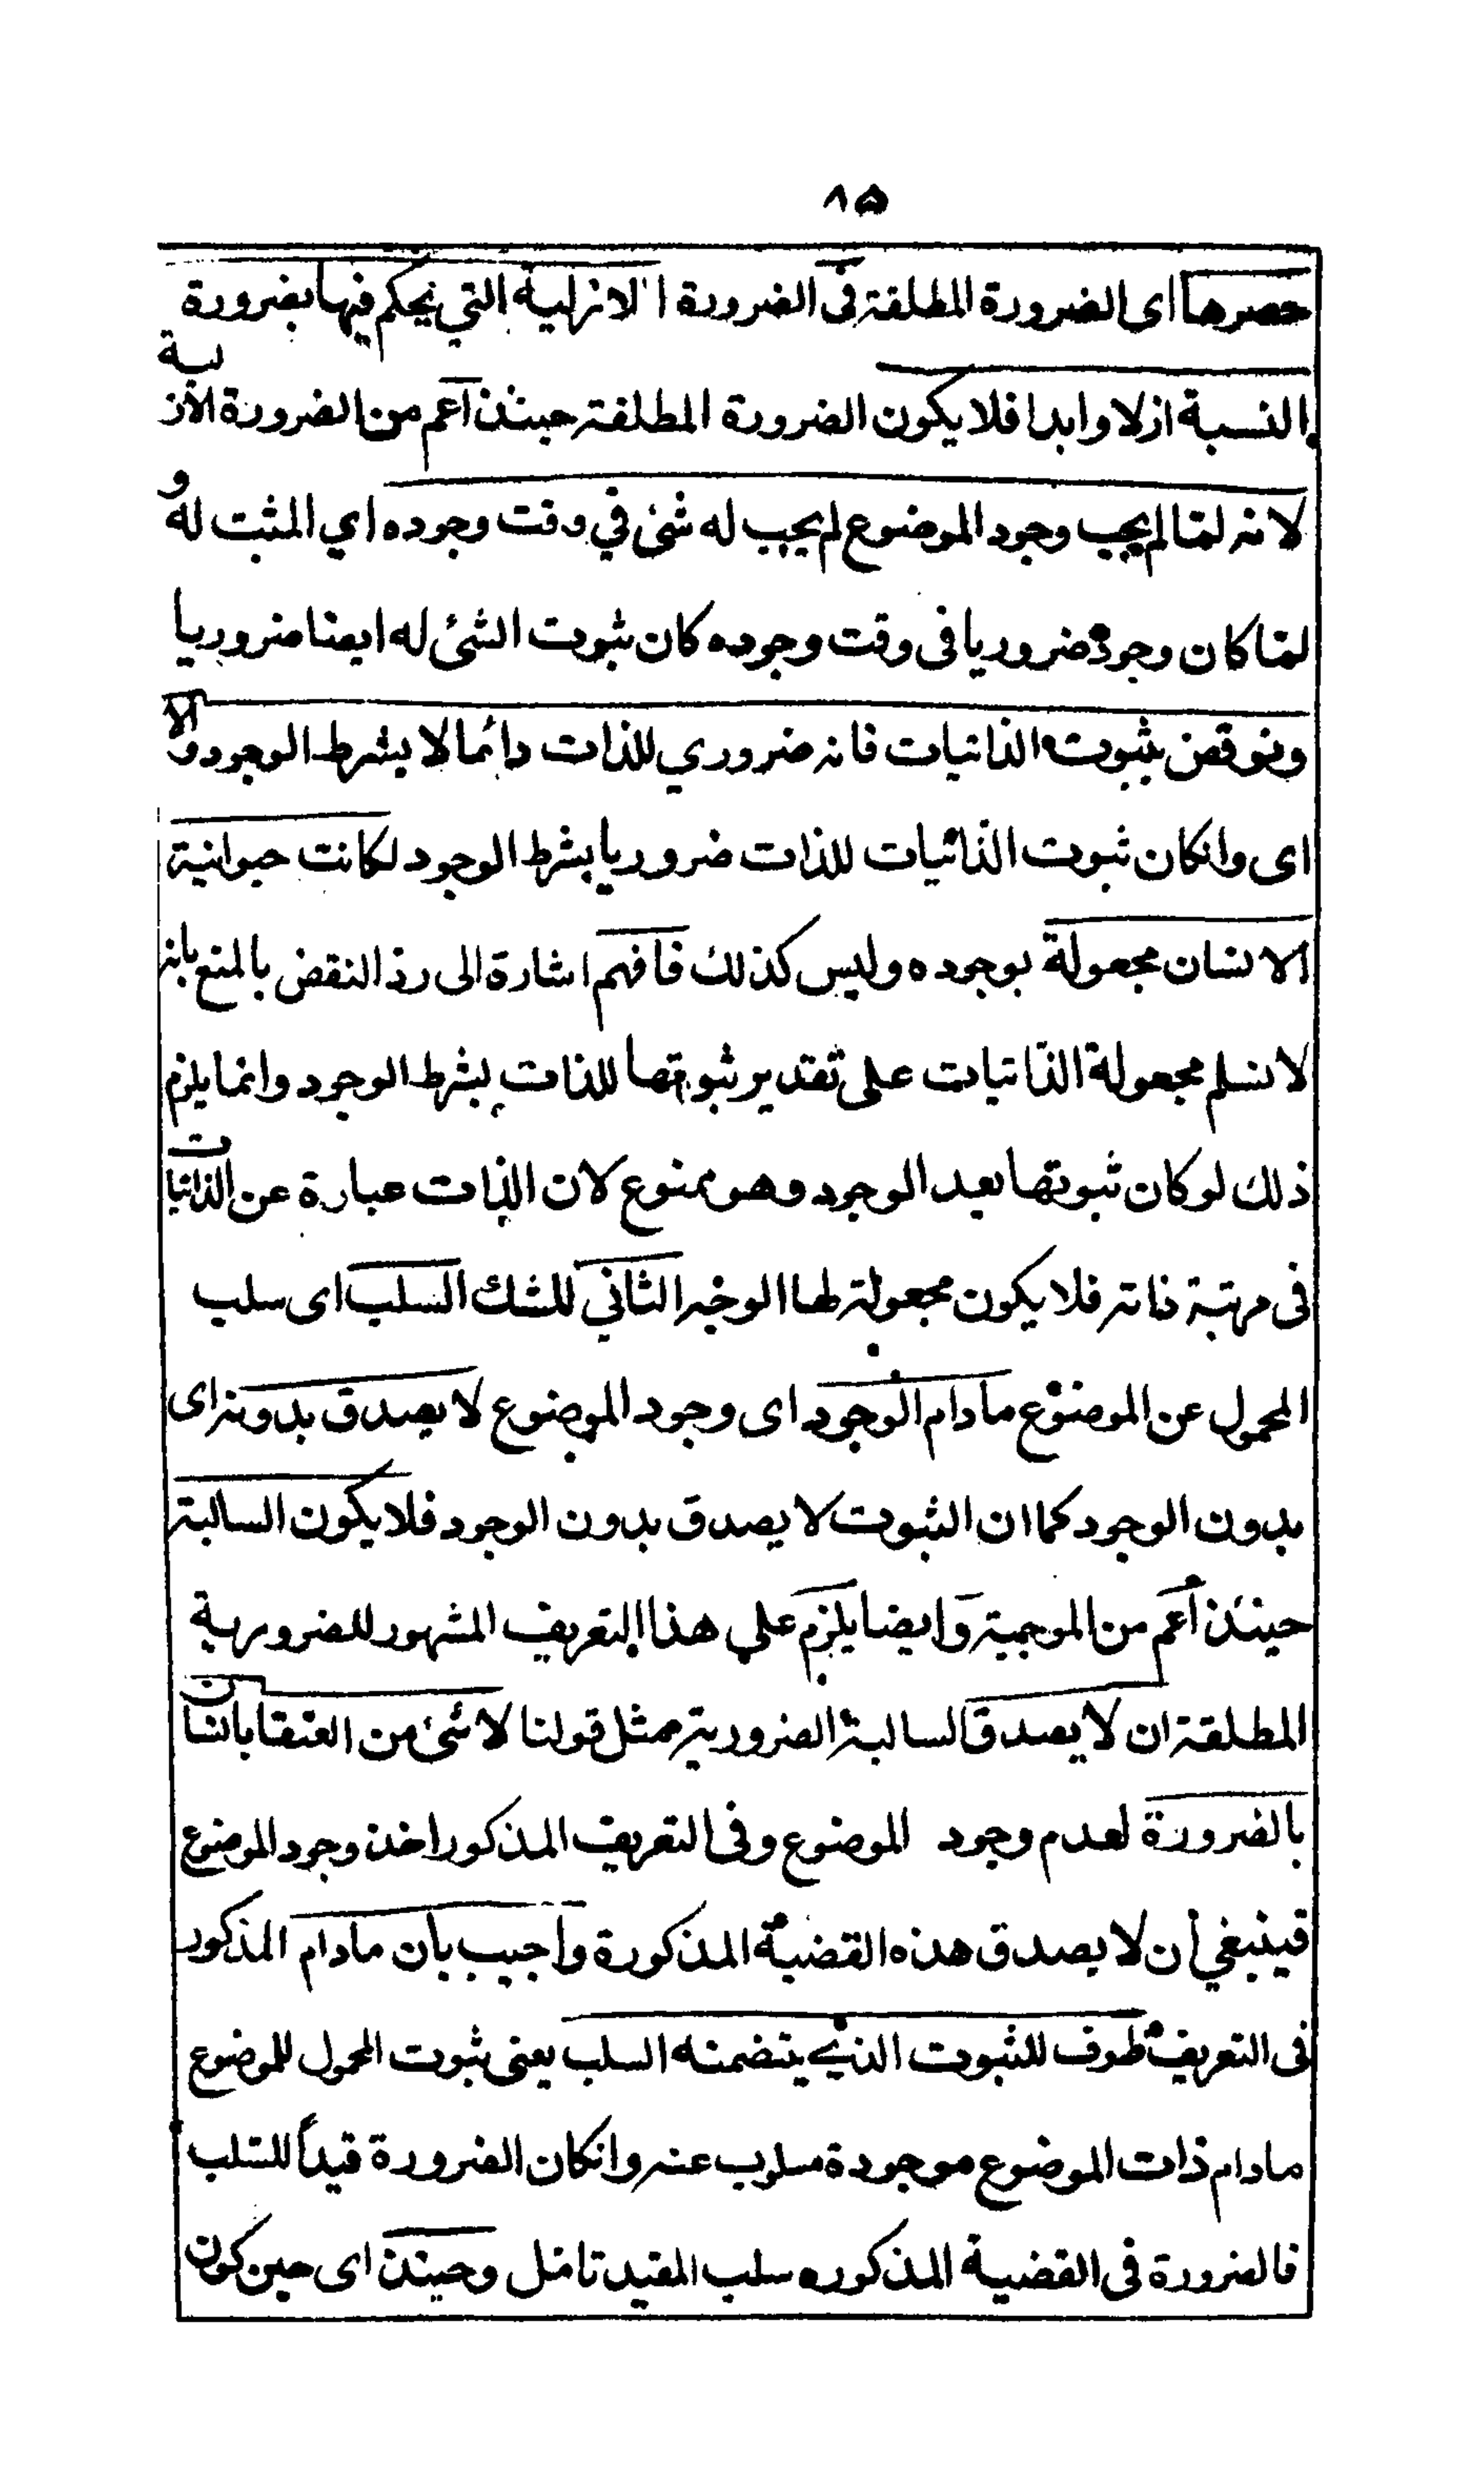 ٨٥
حصرها اى الضرورة المطلقة فى الضرورة الازلية التي يحكم فيها بضرورة
النسبة ازلا وابدا فلا يكون الضرورة المطلقة حينئذ اعم من الضرورة الازلية
لانه لما لم يجب وجود الموضوع لم يجب له شئ في وقت وجوده اي المثبت له و
لما كان وجوده ضروريا فى وقت وجوده كان ثبوت الشئ له ايضا ضروريا
ونوقض بثبوت الذاتيات فانه ضروري للذات دائما لا بشرط الوجود والا
اى وانكان ثبوت الذاتيات للذات ضروريا بشرط الوجود لكانت حيوانية
الانسان مجعولة بوجوده وليس كذلك فافهم اشارة الى رد النقض بالمنع بانه
لا نسلم مجعولة الذاتيات على تقدير ثبوتها للذات بشرط الوجود وانما يلزم
ذلك لو كان ثبوتها بعد الوجود وهو ممنوع لان الذات عبارة عن الذاتيات
فى مرتبة ذاته فلا يكون مجعولة لها الوجه الثاني للشك السلب اى سلب
المحمول عن الموضوع مادام الوجود اى وجود الموضوع لا يصدق بدونه اى
بدون الوجود كما ان الثبوت لا يصدق بدون الوجود فلا يكون السالبة
حينئذ اعم من الموجبة وايضا يلزم على هذا التعريف المشهور للضرورية
المطلقة ان لا يصدق السالبة الضرورية مثل قولنا لا شئ من العنقا بانسان
بالضرورة لعدم وجود الموضوع وفى التعريف المذكور اخذ وجود الموضوع
فينبغي أن لا يصدق هذه القضية المذكورة واجيب بان مادام المذكور
فى التعريف ظرف للثبوت الذي يتضمنه السلب يعنى ثبوت المحمول للموضوع
مادام ذات الموضوع موجودة مسلوب عنه وانكان الضرورة قيداً للسلب
فالضرورة فى القضية المذكوره سلب المقيد تامل وحينئذ اى حين كون